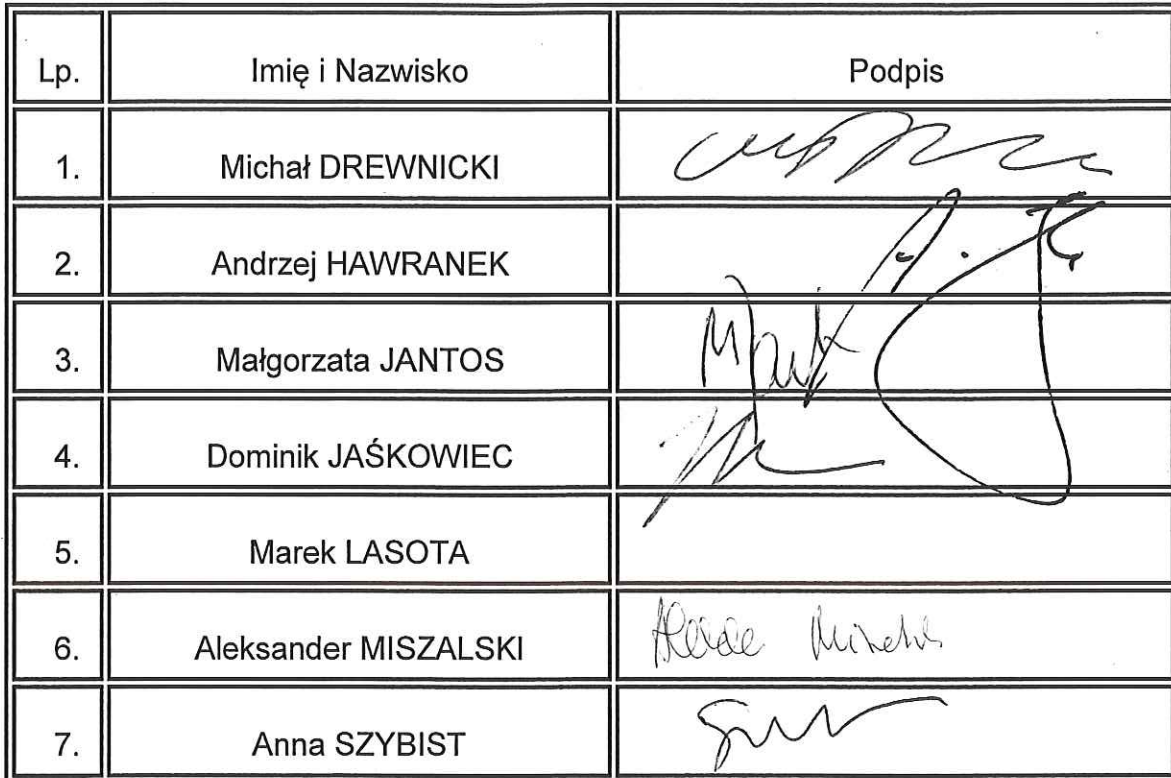 Lp. Imię i Nazwisko Podpis
1. Michał DREWNICKI
2. Andrzej HAWRANEK
3. Małgorzata JANTOS
4. Dominik JAŚKOWIEC
5. Marek LASOTA
6. Aleksander MISZALSKI
7. Anna SZYBIST